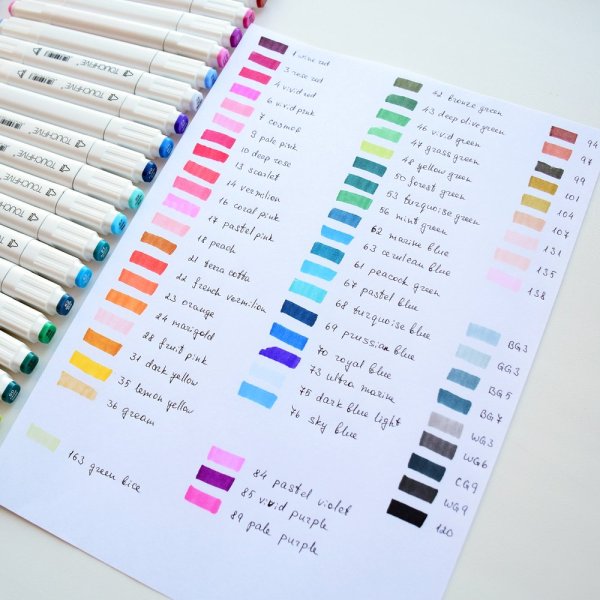 TOUCHFIVE
TOUCHFIVE
TOUCHFIVE
TOUCHFIVE
TOUCHFIVE
TOUCHFIVE
TOUCHFIVE
1 wine red
3 rose red
4 vivid red
6 vivid pink
7 cosmos
9 pale pink
10 deep rose
13 scarlet
14 vermilion
16 coral pink
17 pastel pink
18 peach
21 terra cotta
22 french vermilion
23 orange
24 marigold
28 fruit pink
31 dark yellow
35 lemon yellow
36 cream
163 green bice
42 bronze green
43 deep olive green
46 vivid green
47 grass green
48 yellow green
50 forest green
53 turquoise green
56 mint green
62 marine blue
63 cerulean blue
61 peacock green
67 pastel blue
68 turquoise blue
69 prussian blue
70 royal blue
73 ultra marine
75 dark blue light
76 sky blue
84 pastel violet
85 vivid purple
89 pale purple
94
97
99
101
104
107
131
135
138
BG3
GG3
BG5
BG7
WG3
WG6
CG9
WG9
120